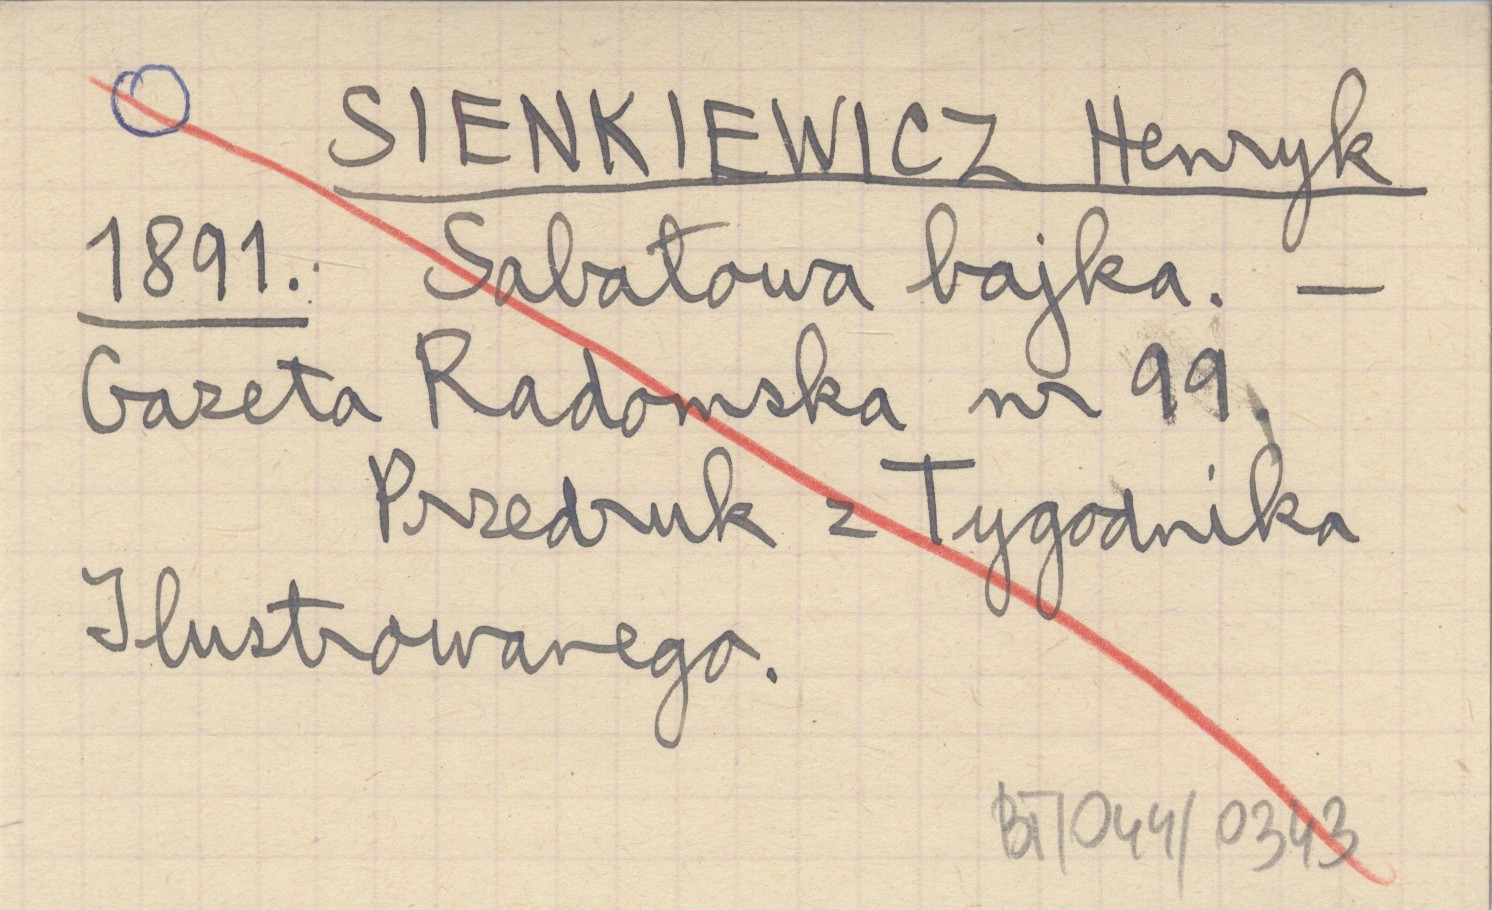 SIENKIEWICZ Henryk
1891. Sabałowa bajka. —
Gazeta Radomska nr 99.
Przedruk z Tygodnika
Ilustrowanego.
BT/044/0343